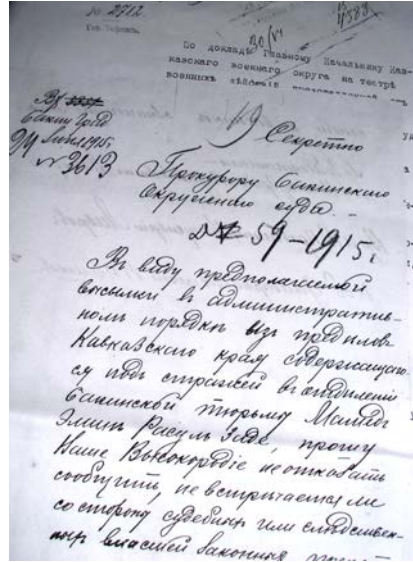 № 2712
По докладѣ Главному Начальнику Кав-
казскаго военнаго округа на театрѣ
военныхъ
30/VI
19
Секретно
1915г.
№ 3613
Прокурору Бакинскаго
Окружнаго суда.
59-1915г.
Въ виду предполагаемой
высылки въ административ-
номъ порядкѣ изъ предѣловъ
Кавказскаго края содержащаго-
ся подъ стражей въ отдѣленіи
Бакинской тюрьмы Мамедъ
Эминъ Расулъ Заде, прошу
Ваше Высокородіе не отказать
сообщить, не встрѣчается ли
со стороны судебныхъ или слѣдствен-
ныхъ властей законныя